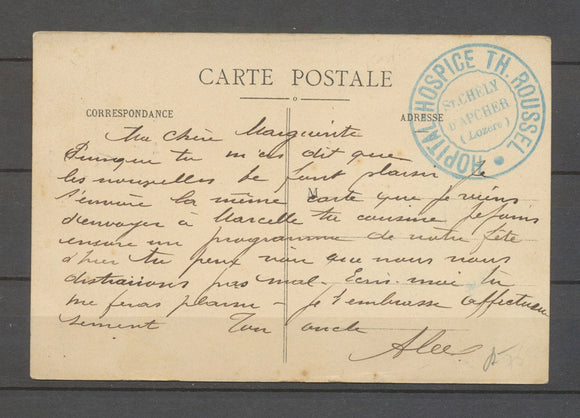 CARTE POSTALE
CORRESPONDANCE
ADRESSE
HOPITAL HOSPICE TH. ROUSSEL
St CHÉLY
D'APCHER
(Lozère)
Ma chère Marguerite
Puisque tu m'as dit que
les nouvelles te font plaisir je
t'envoie la même carte que je viens
M
d'envoyer à Marcelle ta cousine je joins
encore un programme de notre fête
d'hier tu peux voir que nous nous
distraiions pas mal. Ecris-moi tu
me feras plaisir - je t'embrasse affectueu
sement Ton oncle